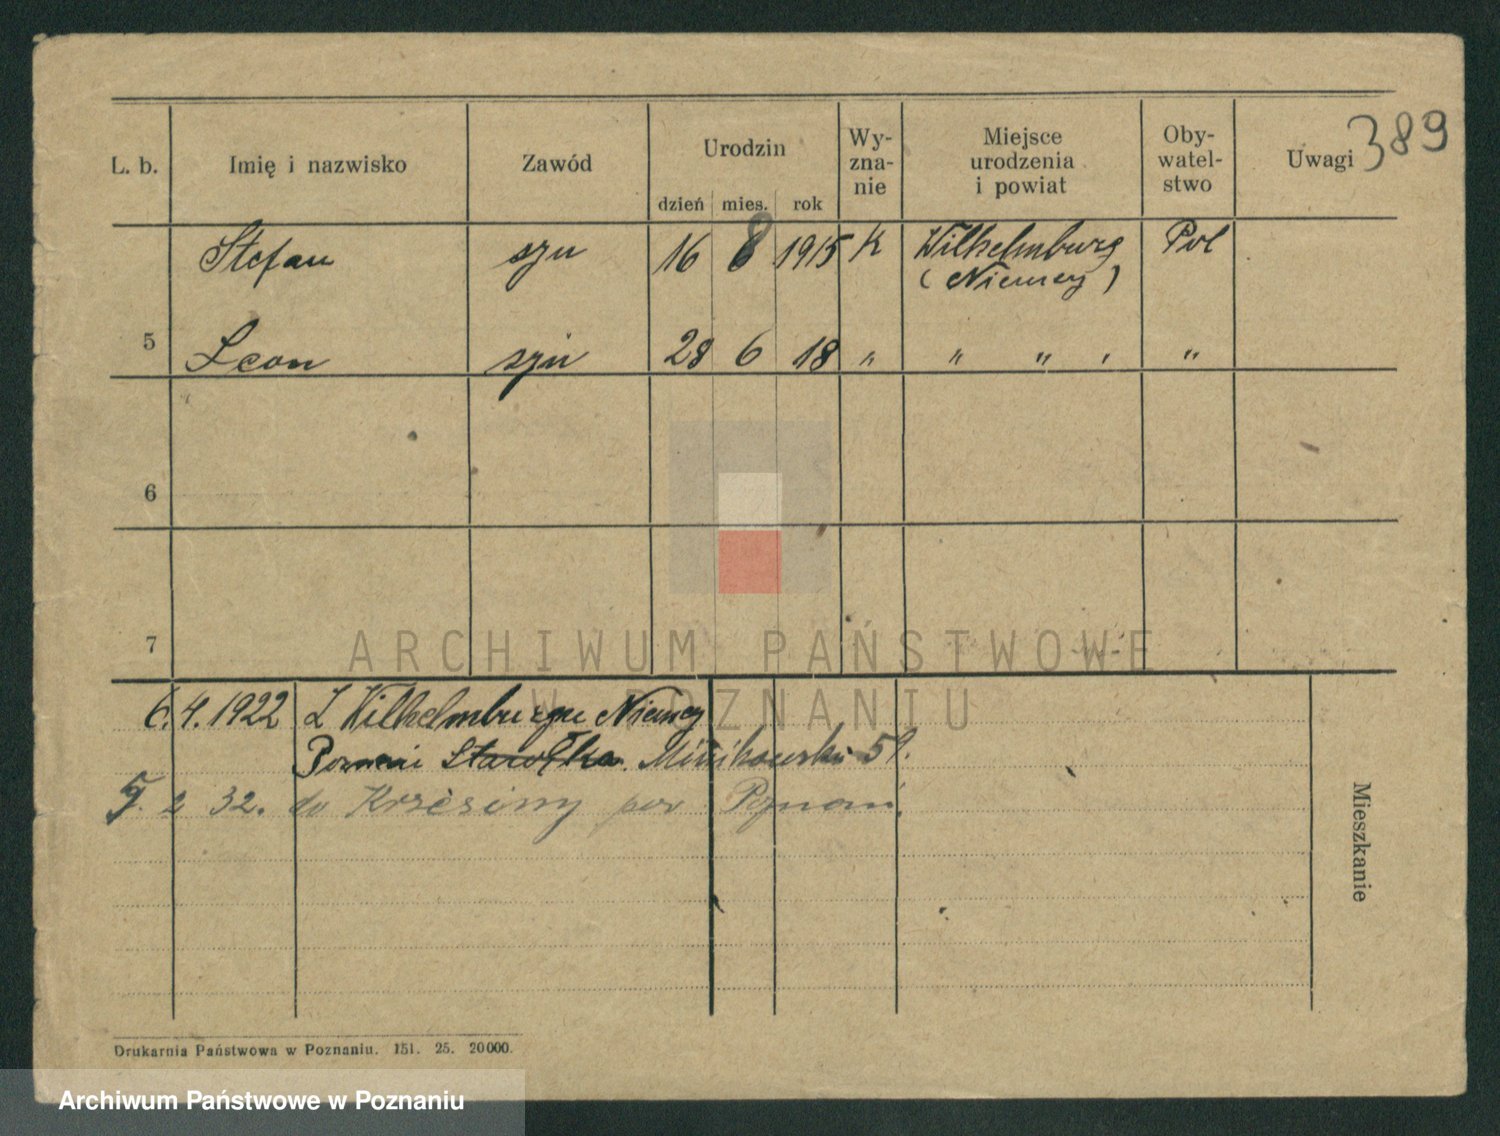 389
L. b. Imię i nazwisko Zawód Urodzin dzień mies. rok Wy-zna-nie Miejsce urodzenia i powiat Oby-watel-stwo Uwagi
Stefan syn 16 8 1915 K Wilhelmburg Pol
(Niemcy)
5 Leon syn 28 6 18 " " " " "
6
7
ARCHIWUM PAŃSTWOWE
W POZNANIU
6.4.1922 Z Wilhelmburgu Niemcy
Poznań Starołęka Minikowska 59.
5. 2 32. do Krzesiny pow Poznań.
Mieszkanie
Drukarnia Państwowa w Poznaniu. 151. 25. 20000.
Archiwum Państwowe w Poznaniu